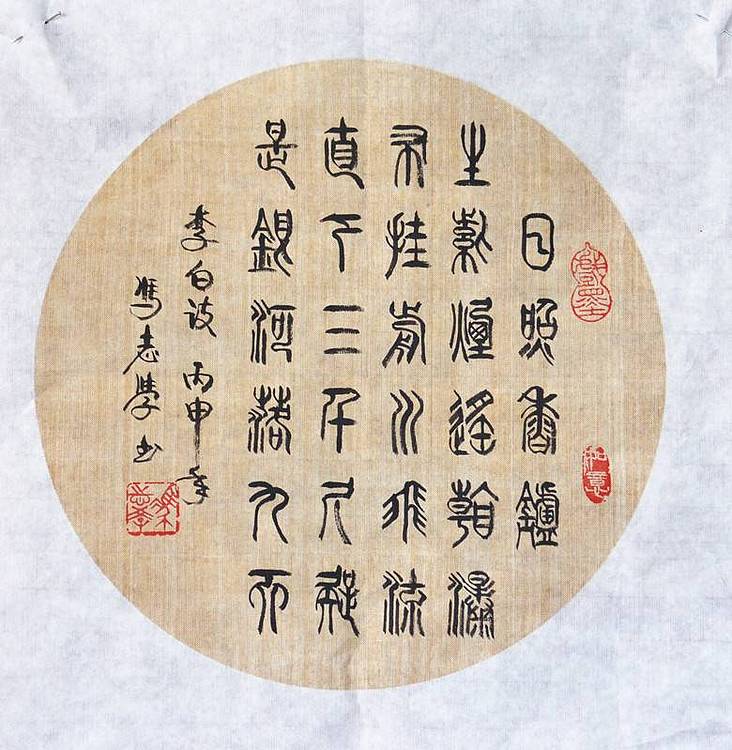 日照香鑪
生紫煙遙看瀑
布挂前川飛流
直下三千尺疑
是銀河落九天
李白诗 丙申年
馮志學书
如意